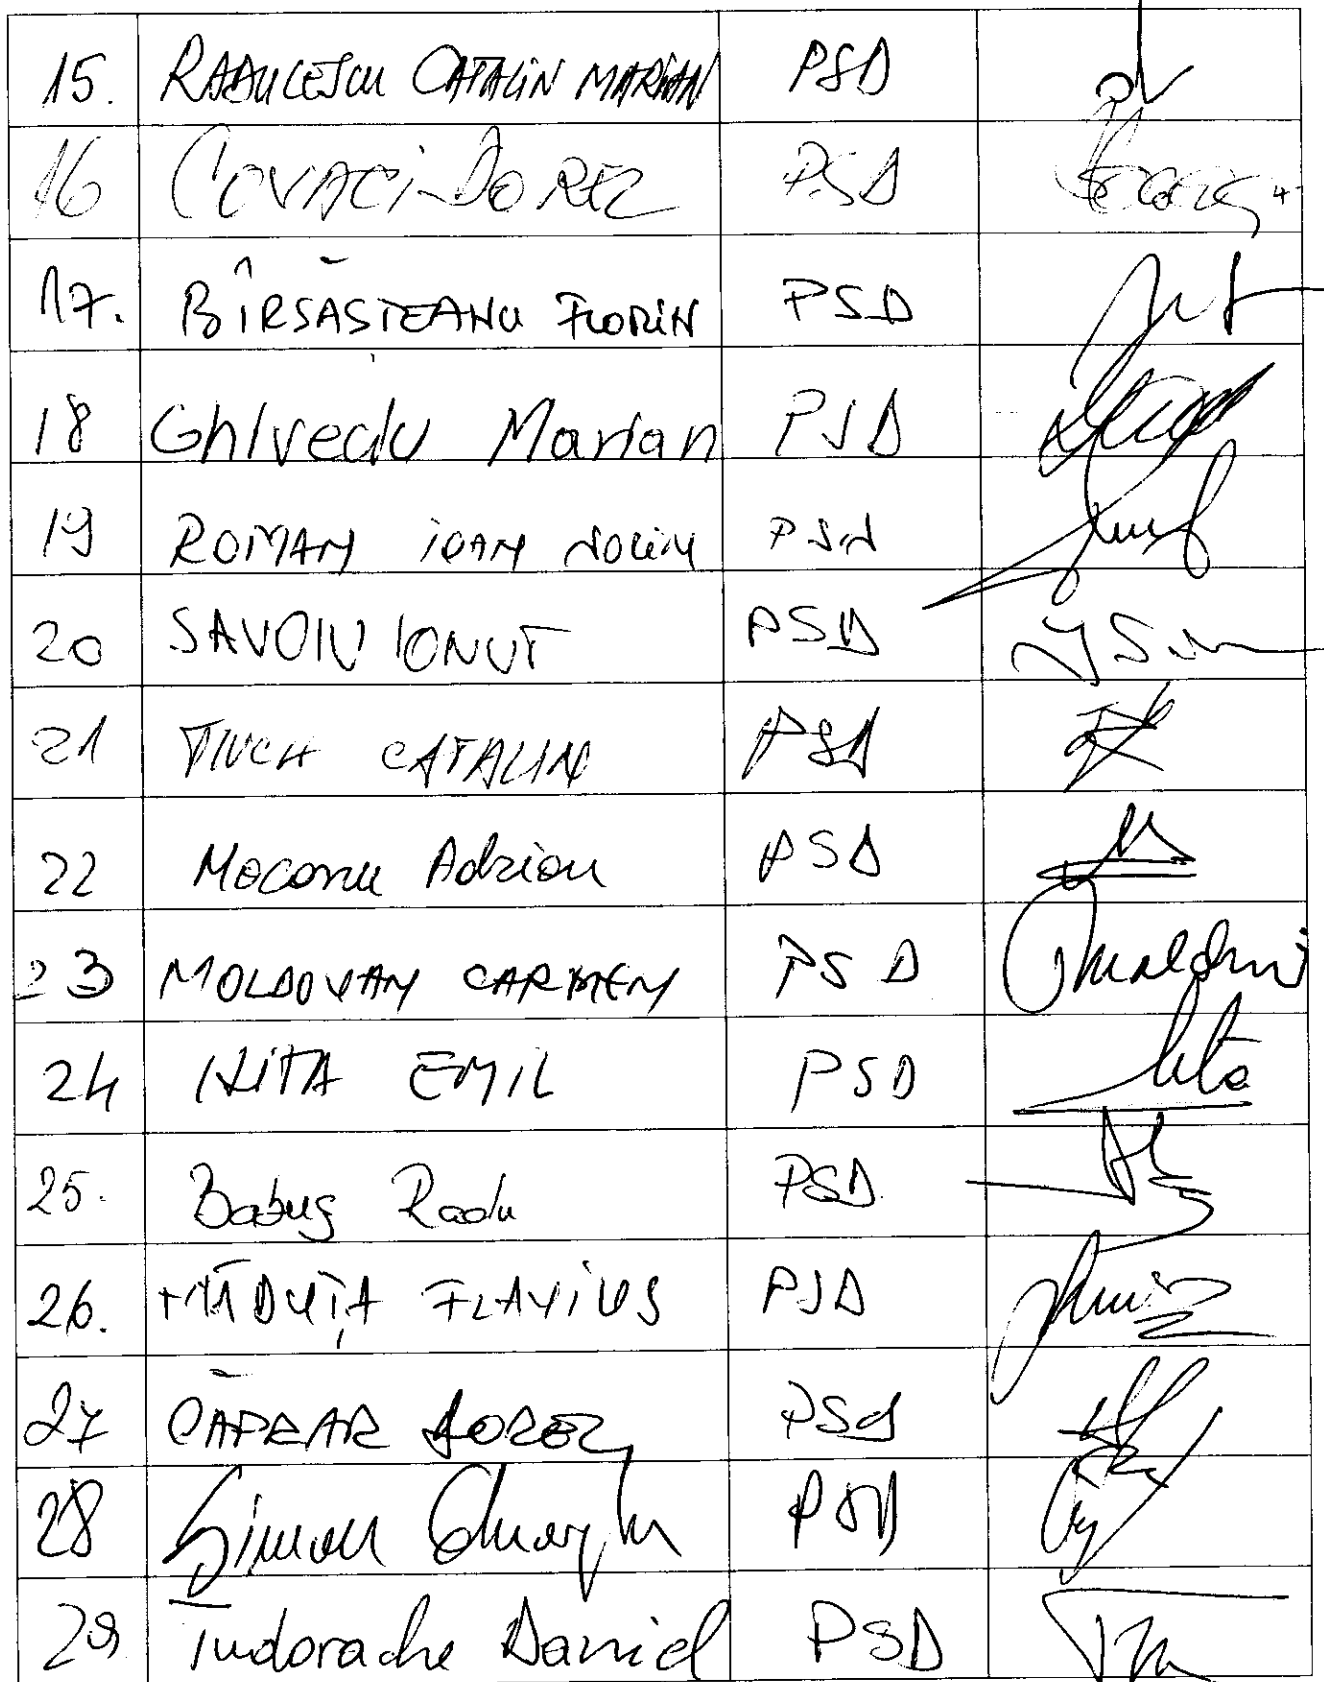 15. RADUCESCU CATALIN MARIAN PSD
16 COVACI DOREL PSD
17. BÎRSĂSTEANU FLORIN PSD
18 Ghiveciu Marian PSD
19 ROMAN IOAN SORIN PSD
20 SAVOIU IONUT PSD
21 TIUCH CATALIN PSD
22 Mocanu Adrian PSD
23 MOLDOVAN CARMEN PSD
24 NITA EMIL PSD
25. Babuș Radu PSD
26. MĂDUȚA FLAVIUS PSD
27 CĂPRAR DOREL PSD
28 Simon Gheorghe PSD
29 Tudorache Daniel PSD